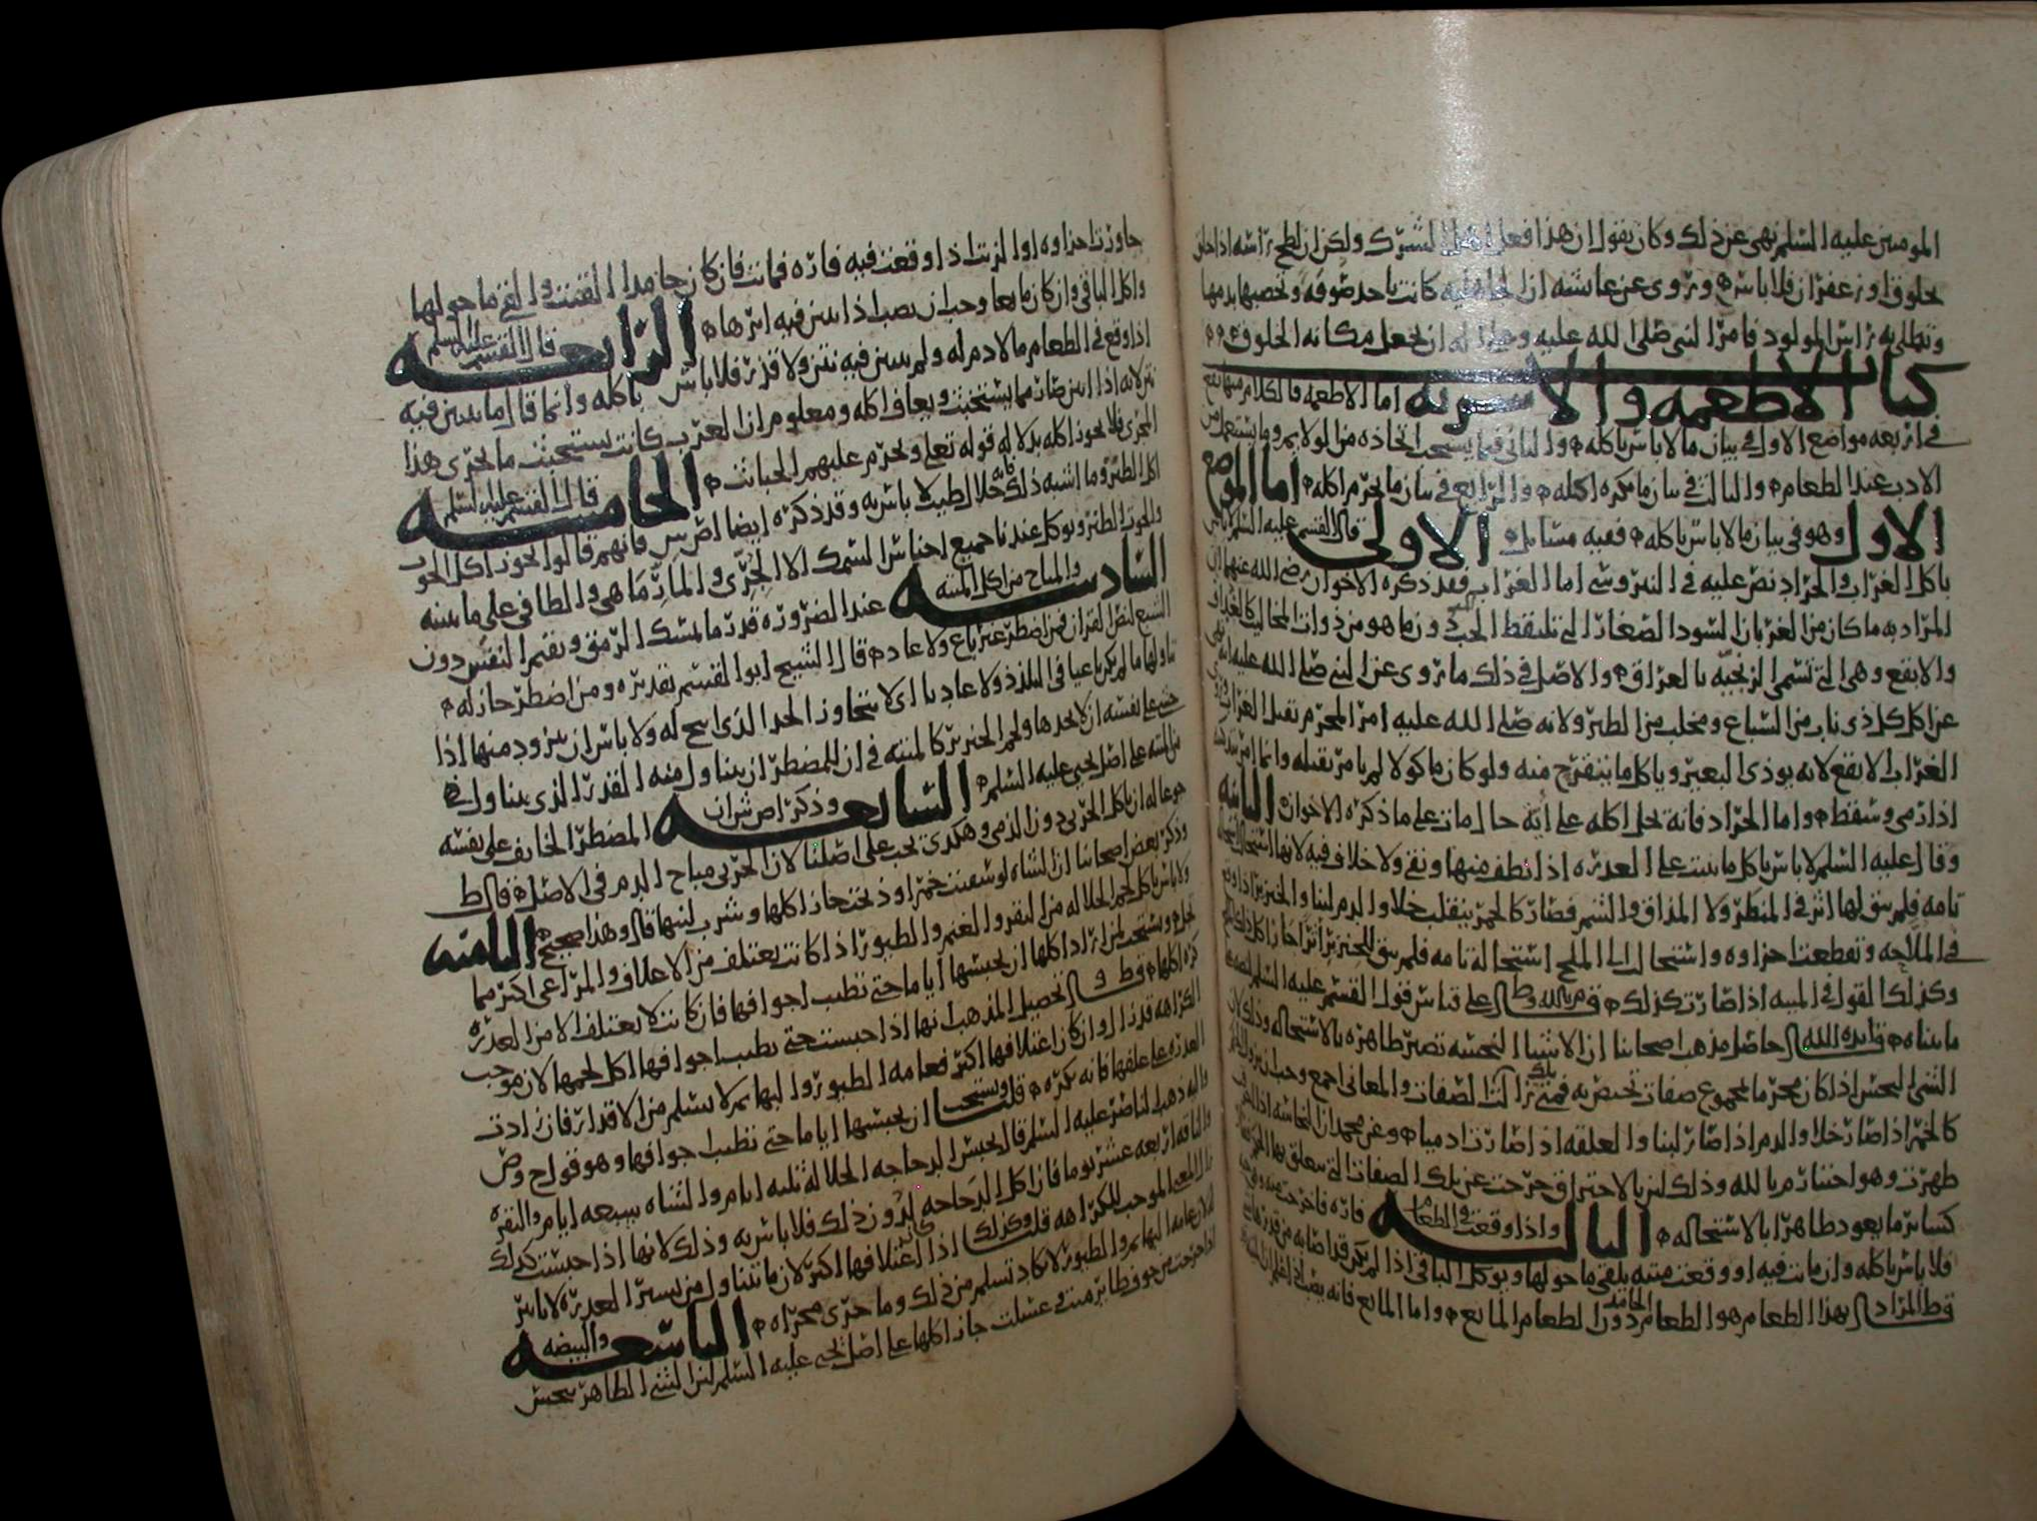 المومنين عليه السلم نهى عن ذلك وكان يقول ان هذا فعل اهل الشرك ولكن ان لطخ راسه اذا حلق
بخلوق او زعفران فلا باس وروي عن عايشه ان الجاهليه كانت ياخذ صوفه وتخضبها بدمها
وتطلي به راس المولود فامر النبي صلى الله عليه وعلى اله ان يجعل مكانه الخلوق
كتاب الاطعمه والاشربه اما الاطعمه فالكلام منها يقع
في اربعه مواضع الاول في بيان ما لا باس باكله والثاني فيما يستحب اتخاذه من الولايم وما يستعمل من
الادب عند الطعام والثالث في بيان ما يكره اكله والرابع في بيان ما يحرم اكله اما الموضع
الاول وهو في بيان ما لا باس باكله ففيه مسايل الاولى قال القسم عليه السلم لا باس
باكل الغراب والجراد نص عليه في النيروسي اما الغراب فقد ذكره الاخوان رضي الله عنهما ان
المراد به ما كان من الغربان السود الصغار التي تلتقط الحب دون ما هو من ذوات المخاليب كالغداف
والابقع وهي التي تسمى الزنجيه بالعراق والاصل في ذلك ما روي عن النبي صلى الله عليه انه نهى
عن اكل كل ذي ناب من السباع ومخلب من الطير ولانه صلى الله عليه امر المحرم بقتل الغراب
الغراب الابقع لانه يوذي البعير وياكل ما يتقرح منه ولو كان ماكولا لم يامر بقتله وانما امر
اذا رمى وسقط واما الجراد فانه يحل اكله على ايه حال مات على ما ذكره الاخوان الثانيه
وقال عليه السلم لا باس باكل ما ينبت على العذره اذا نظف منها ونقي ولا خلاف فيه لانها استحالت استحاله
تامه فلم يبق لها اثر في المنظر ولا المذاق والشم فصار كالخمر ينقلب خلا والدم لبنا والخنزير اذا وقع
في الملاحه وتقطعت اجزاوه واستحال الى الملح استحاله تامه فلم يبق للخنزير اثر جاز اكل ذلك الملح
وكذلك القول في الميته اذا صارت كذلك قال على قياس قول القسم عليه السلم
ما بيناه حاصل مذهب اصحابنا ان الاشيا النجسه تصير طاهره بالاستحاله وذلك لان
الشي النجس اذا كان محرما لمجموع صفات تختص به فمتى زالت تلك الصفات والمعاني اجمع وجب
كالخمر اذا صار خلا والدم اذا صار لبنا والعلقه اذا صارت ادميا وعن محمد ان النجاسه اذا احترقت
طهرت وهو اختيار م بالله وذلك لان بالاحتراق خرجت عن تلك الصفات التي يتعلق بها التحريم
كساير ما يعود طاهرا بالاستحاله الثالثه واذا وقعت في الطعام فاره فاخرجت منه
فلا باس باكله وان ماتت فيه او وقعت ميته يلقى ما حولها ويوكل الباقي اذا لم يكن قد اصابه من قذرها شي
قط المراد بهذا الطعام هو الطعام الجامد دون الطعام المايع واما المايع فانه
جاورت اجزاوه او الزيت اذا وقعت فيه فاره فماتت فان كان جامدا القيت والقي ما حولها
واكل الباقي وان كان مايعا وجب ان يصب اذا تبين فيه اثرها الرابعه قال القسم عليه السلم
اذا وقع في الطعام ما لا دم له ولم يتبين فيه نتن ولا قذر فلا باس باكله وانما قال ما يتبين فيه
نتن لانه اذا انتن صار مما يستخبث ويعاف اكله ومعلوم ان العرب كانت تستخبث ما يجري هذا
المجرى فلا يجوز اكله بدلاله قوله تعلى ويحرم عليهم الخبائث الخامسه قال القسم عليه السلم
اكل الطين وما اشبه ذلك فانه حلال طيب لا باس به وقد ذكره ايضا اص ش فانهم قالوا يجوز اكل الحوت
والحوت الطين ويوكل عندنا جميع اجناس السمك الا الجري والمارماهي والطافي على ما نبينه
السادسه والمباح من اكل الميته عند الضروره قدر ما يمسك الرمق ويقيم النفس دون
الشبع لنص القران فمن اضطر غير باغ ولا عاد قال الشيخ ابو القسم تقديره ومن اضطر جاز له
تناولها ما لم يكن باغيا في التلذذ ولا عاديا اي لا يتجاوز الحد الذي ابيح له ولا باس ان يتزود منها اذا
خشي على نفسه ان لا يجدها ولحم الخنزير كالميته في ان للمضطر ان يتناول منه القدر الذي يتناوله
من الميته على اصل يحيى عليه السلم السابعه وذكر اص ش ان المضطر الخايف على نفسه
جوعا له ان ياكل الحربي دون الذمي وهكذى يجب على اصلنا لان الحربي مباح الدم في الاصل قال ط
وذكر بعض اصحابنا ان الشاه لو سقيت خمرا وذبحت جاز اكلها وشرب لبنها قال وهذا صحيح الثامنه
ولا باس باكل لحم الجلاله من البقر والغنم والطيور اذا كانت يعتلف من الاعلاف والمراعي اكثر مما
تجل ويستحب لمن اراد اكلها ان يحبسها اياما حتى تطيب اجوافها فان كانت لا يعتلف الا من العذره
كره اكلها قط وتحصيل المذهب انها اذا حبست حتى يطيب اجوافها اكل لحمها لان موجب
الكراهه قد زال وان كان اعتلافها اكثر فعامه الطيور والبهايم لا يسلم من الاقذار فان زادت
العذره على علفها فانه يكره قلت ويستحب ان يحبسها اياما حتى تطيب اجوافها وهو قول ح وص
واليه ذهب الناصر عليه السلم قال يحبس الدجاجه الجلاله ثلثه ايام والشاه سبعه ايام والبقره
والناقه اربعه عشر يوما فان اكل الدجاجه لدون ذلك فلا باس به وذلك لانها اذا حبست كذلك
زال المعنى الموجب للكراهه قلت وكذلك اذا كان اعتلافها اكثر لان ما تتناول من يسير العذره لا تاثير
له لان عامه البهايم والطيور لا تكاد تسلم من ذلك وما جرى مجراه التاسعه والبيضه
اذا خرجت من جوف طاير ميت وغسلت جاز اكلها على اصل يحيى عليه السلم لان الشي الطاهر ينجس